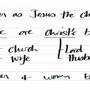 en as Jesus the Ch
re are Christ's b
Church | Lord
wife | Husb
en & women b